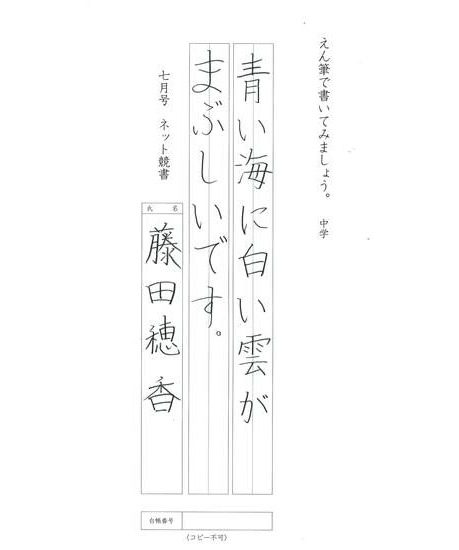 えん筆で書いてみましょう。 中学
青い海に白い雲が
まぶしいです。
七月号 ネット競書
氏 名
藤田穂香
台帳番号
(コピー不可)